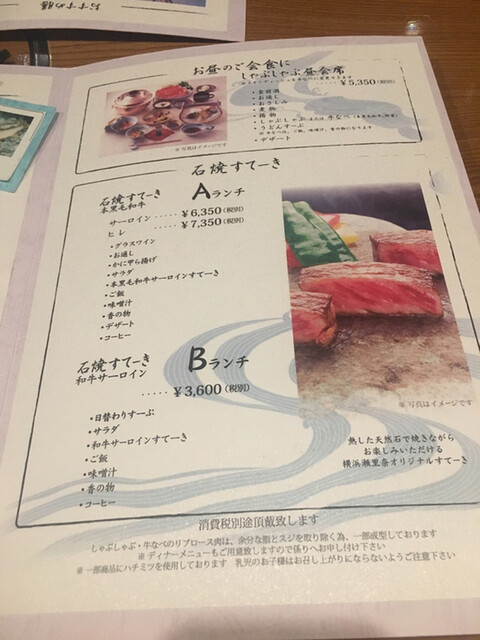 おすすめ膳
お昼のご会食に
しゃぶしゃぶ昼会席
¥5,350(税別)
・食前酒
・お通し
・おさしみ
・煮物
・揚物
・しゃぶしゃぶ または 牛なべ
・うどんすーぷ
・デザート
※写真はイメージです
石焼すてーき
石焼すてーき
本黒毛和牛
Aランチ
サーロイン ····· ¥6,350(税別)
ヒレ ····· ¥7,350(税別)
・グラスワイン
・お通し
・かに甲ら揚げ
・サラダ
・本黒毛和牛サーロインすてーき
・ご飯
・味噌汁
・香の物
・デザート
・コーヒー
石焼すてーき
和牛サーロイン
Bランチ
····· ¥3,600(税別)
・日替わりすーぷ
・サラダ
・和牛サーロインすてーき
・ご飯
・味噌汁
・香の物
・コーヒー
※写真はイメージです
熱した天然石で焼きながら
お楽しみいただける
横浜瀬里奈オリジナルすてーき
消費税別途頂戴致します
しゃぶしゃぶ・牛なべのリブロース肉は、余分な脂とスジを取り除く為、一部成型しております
※ディナーメニューもご用意致しますので係りへお申し付け下さい
※一部商品にハチミツを使用しております 乳児のお子様はお召し上がりにならないようご注意下さい